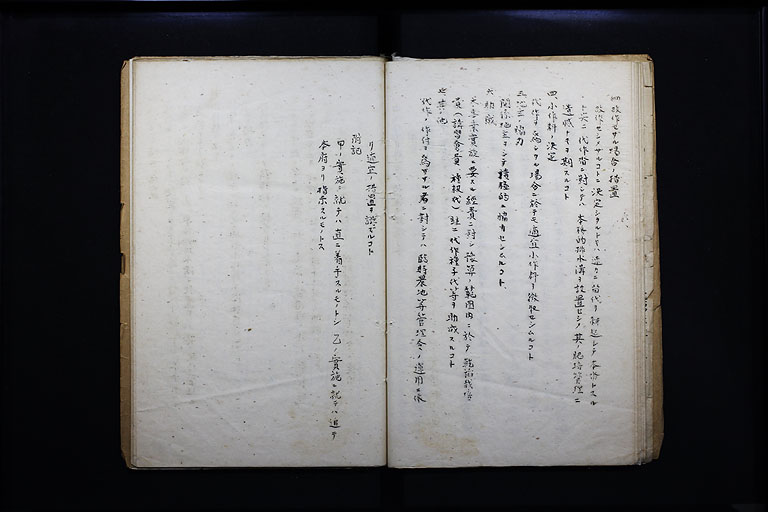 四改作セサル場合ノ措置
改作セシメサルコトニ決定シタルトキハ速カニ苗代ヲ耕起シテ本畓トスル
ト共ニ代作畓ニ対シテハ本格的排水溝ヲ設置セシメ其ノ肥培管理ニ
遺憾ナキヲ期スルコト
四、小作料ノ決定
代作ヲ為シタル場合ニ於テモ適宜小作料ヲ徴収セシムルコト
五、地主ノ協力
関係地主ヲシテ積極的ニ協力セシムルコト
六、助成
本事業実施ニ要スル経費ニ対シ予算ノ範囲内ニ於テ
費(講習会費 種籾代)並ニ代作種子代等ヲ助成スルコト
七、其ノ他
代作ノ作付ヲ為サザル者ニ対シテハ臨時農地等管理令ノ運用ニ依
リ適宜ノ措置ヲ講ズルコト
附記
甲ノ実施ニ就テハ直ニ着手スルモノトシ乙ノ実施ニ就テハ追テ
本府ヨリ指示スルモノトス